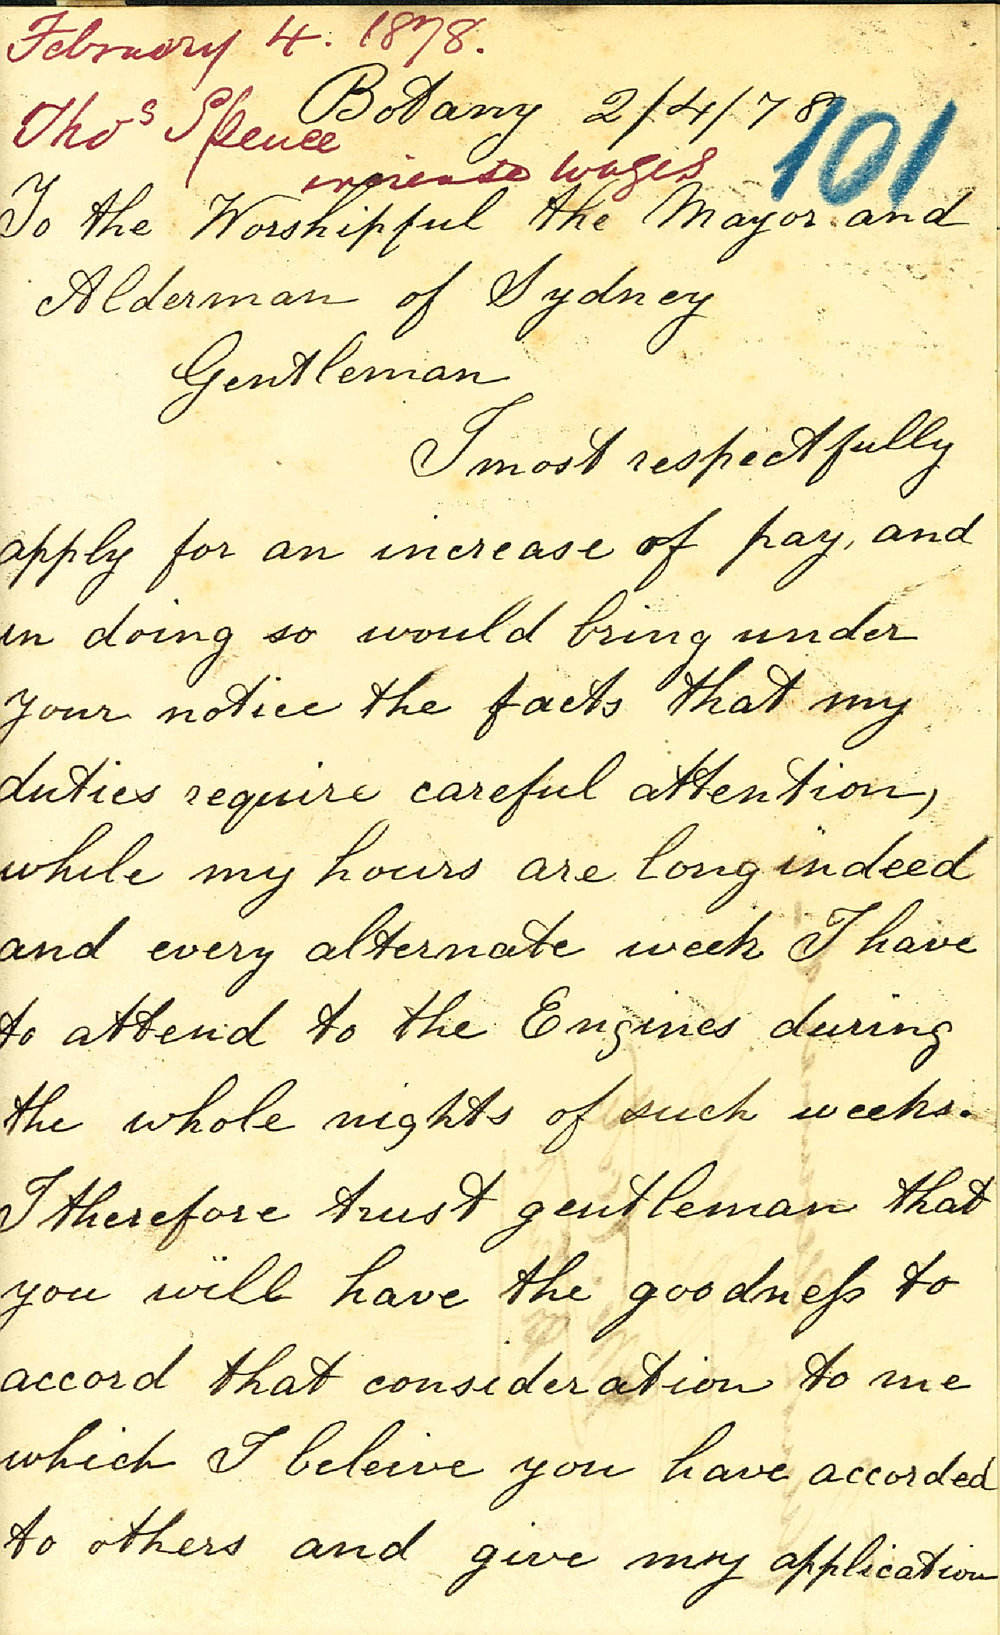 February 4. 1878.
Botany 2/4/78
101
Thos Spence
increase wages
To the Worshipful the Mayor and
Alderman of Sydney
Gentleman
I most respectfully
apply for an increase of pay, and
in doing so would bring under
your notice the facts that my
duties require careful attention,
while my hours are long indeed
and every alternate week I have
to attend to the Engines during
the whole nights of such weeks.
I therefore trust gentleman that
you will have the goodness to
accord that consideration to me
which I beleive you have accorded
to others and give my application